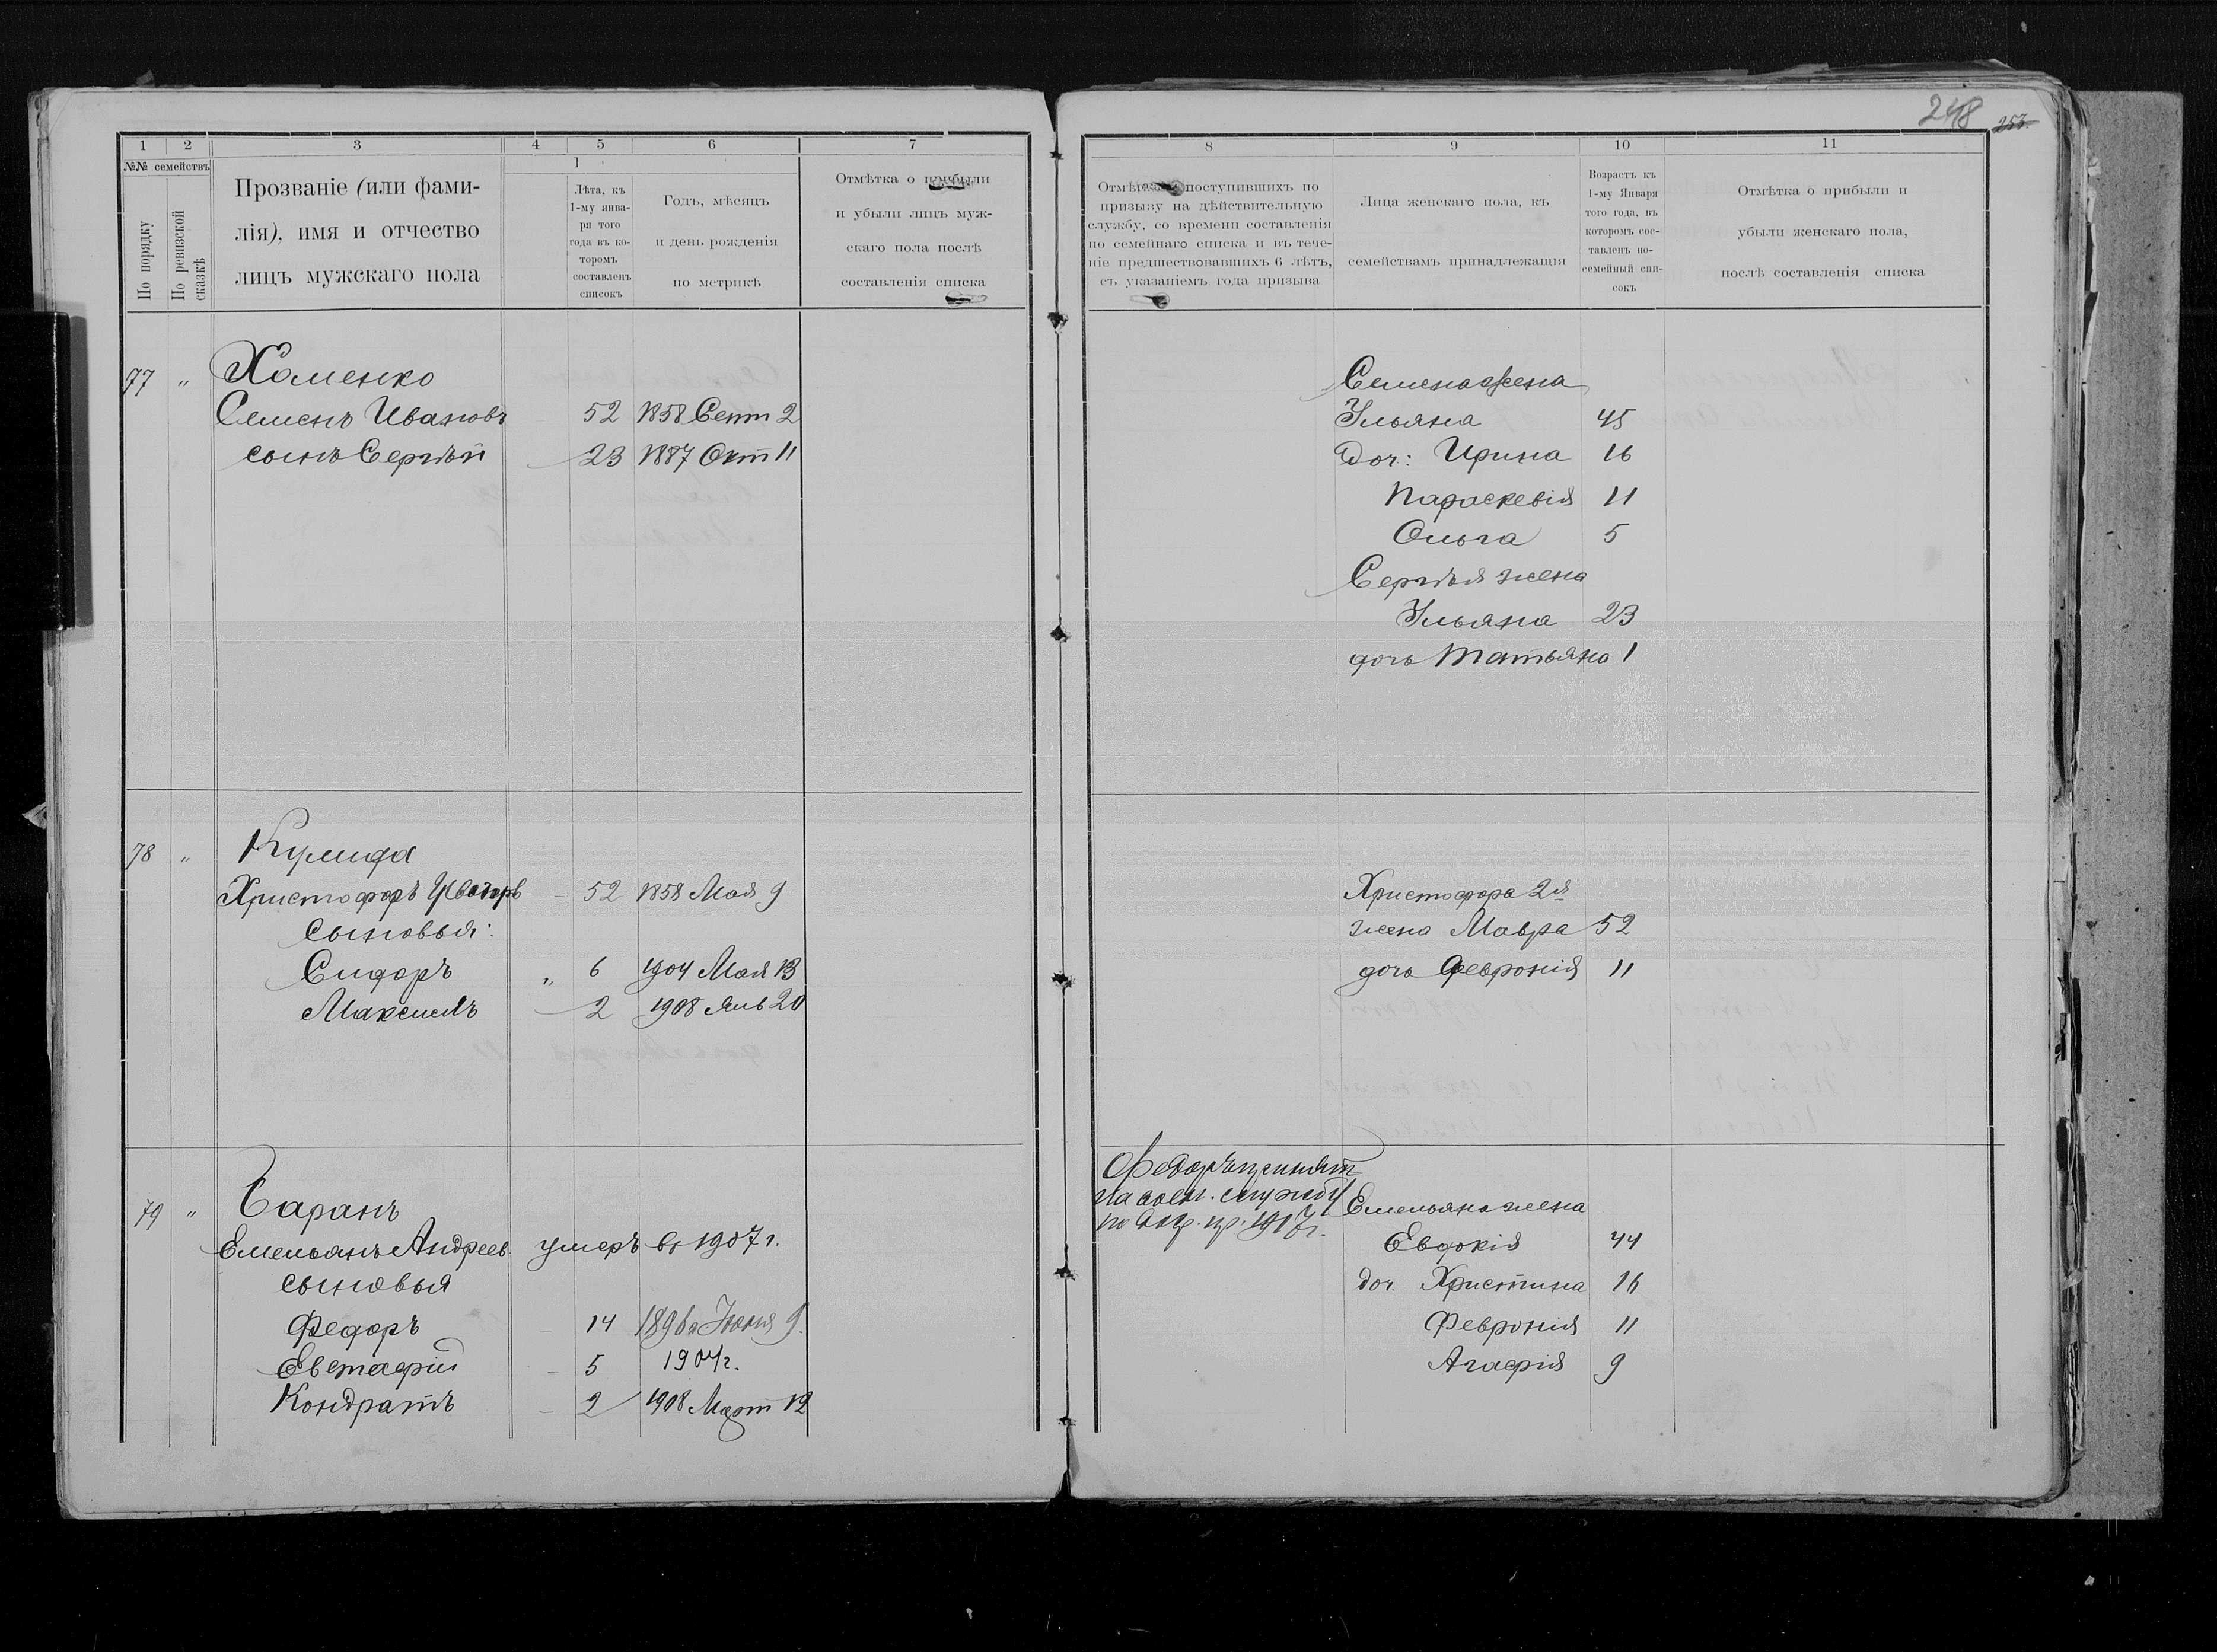 248 253
1 2 3 4 5 6 7
№№ семействъ
По порядку
По ревизской сказкѣ
Прозваніе (или фами-
лія), имя и отчество
лицъ мужскаго пола
1
Лѣта, къ
1-му янва-
ря того
года въ ко-
торомъ
составленъ
списокъ
Годъ, мѣсяцъ
и день рожденія
по метрикѣ
Отмѣтка о прибыли
и убыли лицъ муж-
скаго пола послѣ
составленія списка
77 " Хоменко
Семенъ Ивановъ 52 1858 Сент 2
сынъ Сергѣй 23 1887 Окт 11
78 "
Христофоръ 52 1858 Мая 9
Сыновья:
Сидоръ " 6 1904 Мая 13
Максимъ 2 1908 Янв 20
79 " Баранъ
Емельянъ Андреев. умеръ въ 1907 г.
сыновья
Федоръ 14 1896 Іюня 9.
Евстафій 5 1904 г.
Кондратъ 2 1908 Март 12
8 9 10 11
Отмѣтка поступившихъ по
призыву на дѣйствительную
службу, со времени составленія
по семейнаго списка и въ тече-
ніе предшествовавшихъ 6 лѣтъ,
съ указаніемъ года призыва
Лица женскаго пола, къ
семействамъ принадлежащія
Возрастъ къ
1-му Января
того года, въ
которомъ сос-
тавленъ по-
семейный спи-
сокъ
Отмѣтка о прибыли и
убыли женскаго пола,
послѣ составленія списка
Семена жена
Ульяна 45
Доч: Ирина 16
Параскевія 11
Ольга 5
Сергѣя жена
Ульяна 23
дочь Татьяна 1
Христофора 2я
жена Мавра 52
дочь Февронія 11
Федоръ принят
на воен. службу
по пр. 1917 г.
Емельяна жена
Евдокія 44
доч. Христина 16
Февронія 11
Агафія 9